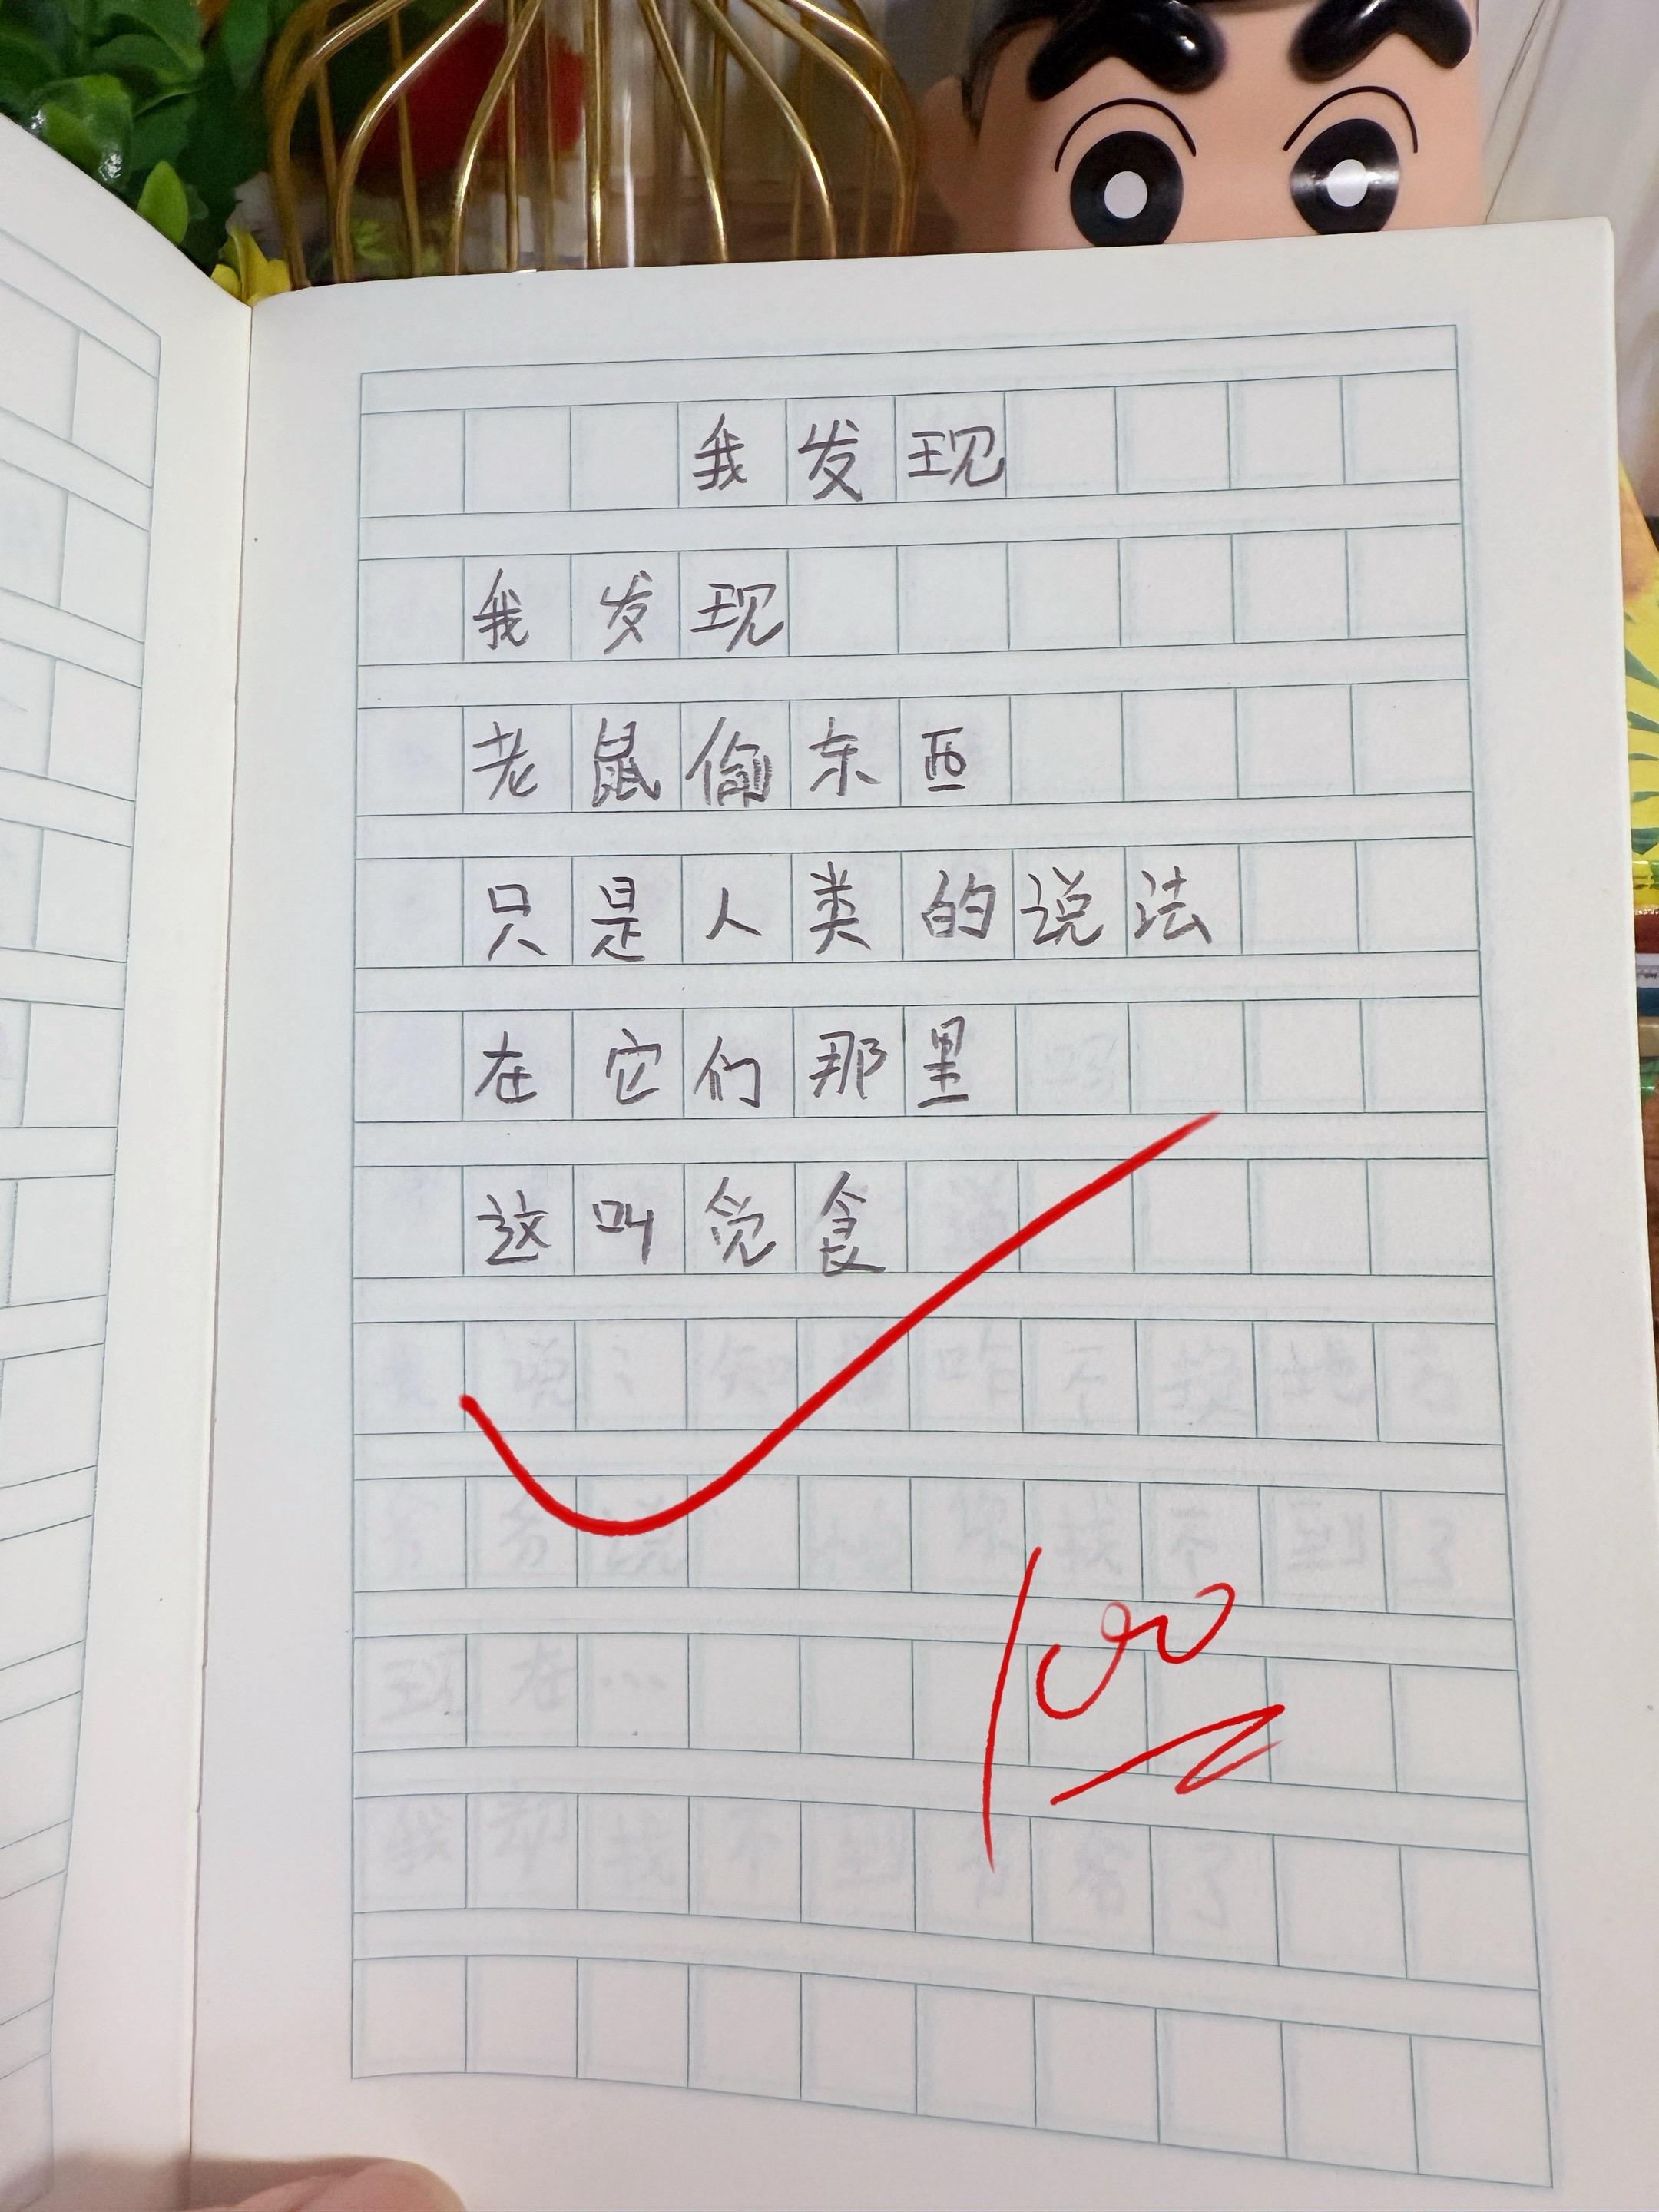 我发现
我发现
老鼠偷东西
只是人类的说法
在它们那里
这叫觅食
100